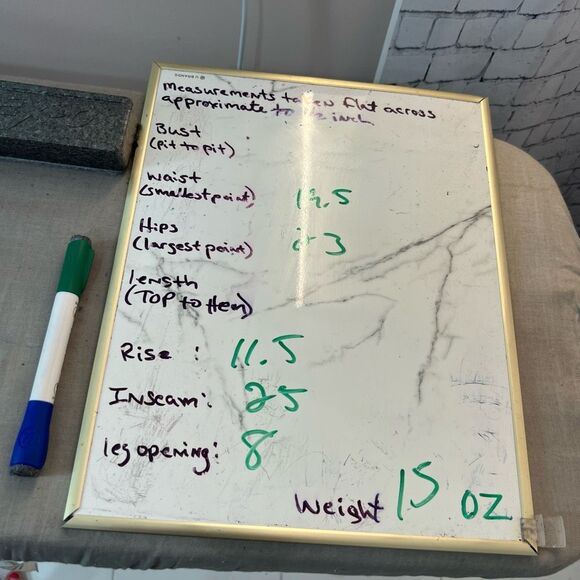 U BRANDS
Measurements taken flat across
approximate to 1/2 inch
Bust
(pit to pit)
Waist
(smallest point)
Hips
(largest point)
Length
(TOP to Hem)
Rise : 11.5
Inseam: 25
leg opening: 8
Weight 15 OZ